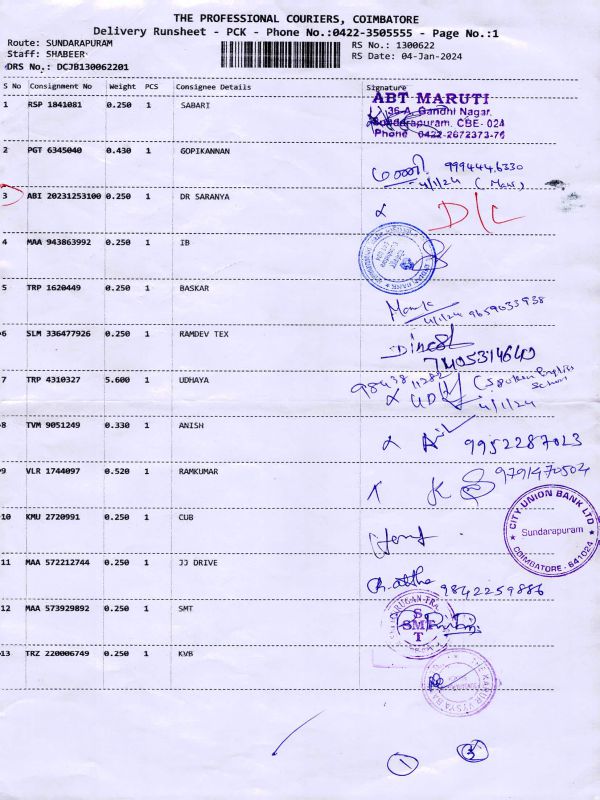 THE PROFESSIONAL COURIERS, COIMBATORE
Delivery Runsheet - PCK - Phone No.:0422-3505555 - Page No.:1
Route: SUNDARAPURAM
RS No.: 1300622
Staff: SHABEER
RS Date: 04-Jan-2024
DRS No.: DCJB130062201
S No Consignment No Weight PCS Consignee Details Signature
1 RSP 1841081 0.250 1 SABARI
ABT MARUTI
36-A, Gandhi Nagar,
Sundarapuram, CBE- 024
Phone 0422-2672373-76
2 PGT 6345040 0.430 1 GOPIKANNAN
4/1/24
3 ABI 20231253100 0.250 1 DR SARANYA
D/L
4 MAA 943863992 0.250 1 IB
5 TRP 1620449 0.250 1 BASKAR
4/1/24 9659033938
6 SLM 336477926 0.250 1 RAMDEV TEX
Dinesh
7405314640
7 TRP 4310327 5.600 1 UDHAYA
4/1/24
8 TVM 9051249 0.330 1 ANISH
9952287013
9 VLR 1744097 0.520 1 RAMKUMAR
9791470504
10 KMU 2720991 0.250 1 CUB
CITY UNION BANK LTD
Sundarapuram
COIMBATORE - 641024
11 MAA 572212744 0.250 1 JJ DRIVE
9842259886
12 MAA 573929892 0.250 1 SMT
SMT
13 TRZ 220006749 0.250 1 KVB
1 3